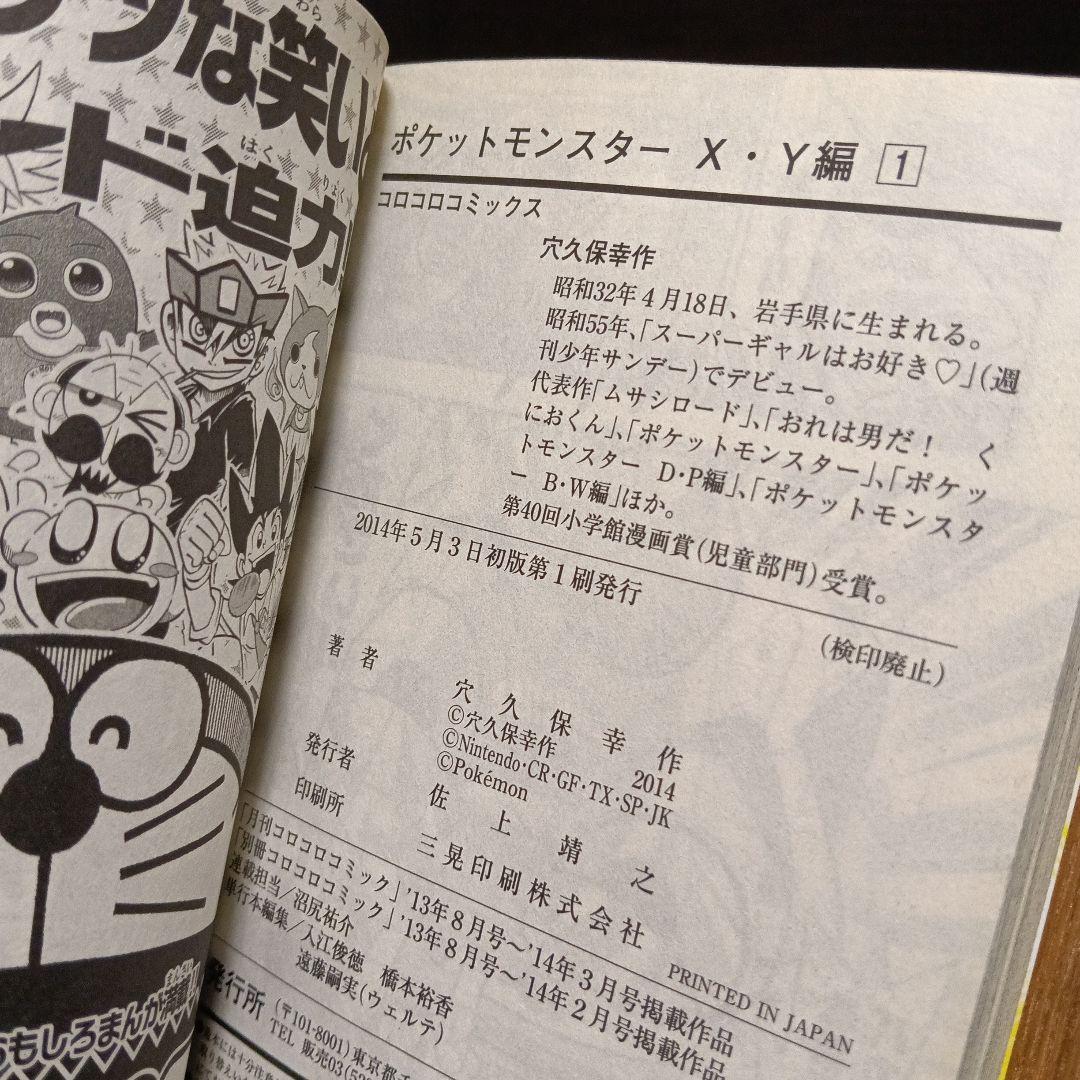 な笑い
わら
ード迫力
はくりょく
おもしろまんが満載
まんさい
ポケットモンスター X・Y編 1
コロコロコミックス
穴久保幸作
昭和32年4月18日、岩手県に生まれる。
昭和55年、「スーパーギャルはお好き♡」(週
刊少年サンデー)でデビュー。
代表作「ムサシロード」、「おれは男だ！ く
におくん」、「ポケットモンスター」、「ポケッ
トモンスター D・P編」、「ポケットモンスタ
ー B・W編」ほか。
第40回小学館漫画賞(児童部門)受賞。
2014年5月3日初版第1刷発行
(検印廃止)
著者 穴久保幸作
©穴久保幸作 2014
©Nintendo・CR・GF・TX・SP・JK
©Pokémon
発行者 佐上靖之
印刷所 三晃印刷株式会社
PRINTED IN JAPAN
「月刊コロコロコミック」'13年8月号～'14年3月号掲載作品
「別冊コロコロコミック」'13年8月号～'14年2月号掲載作品
連載担当／沼尻祐介
単行本編集／入江俊徳 橋本裕香
遠藤嗣実(ウェルテ)
発行所 (〒101-8001)東京都
TEL 販売03(52